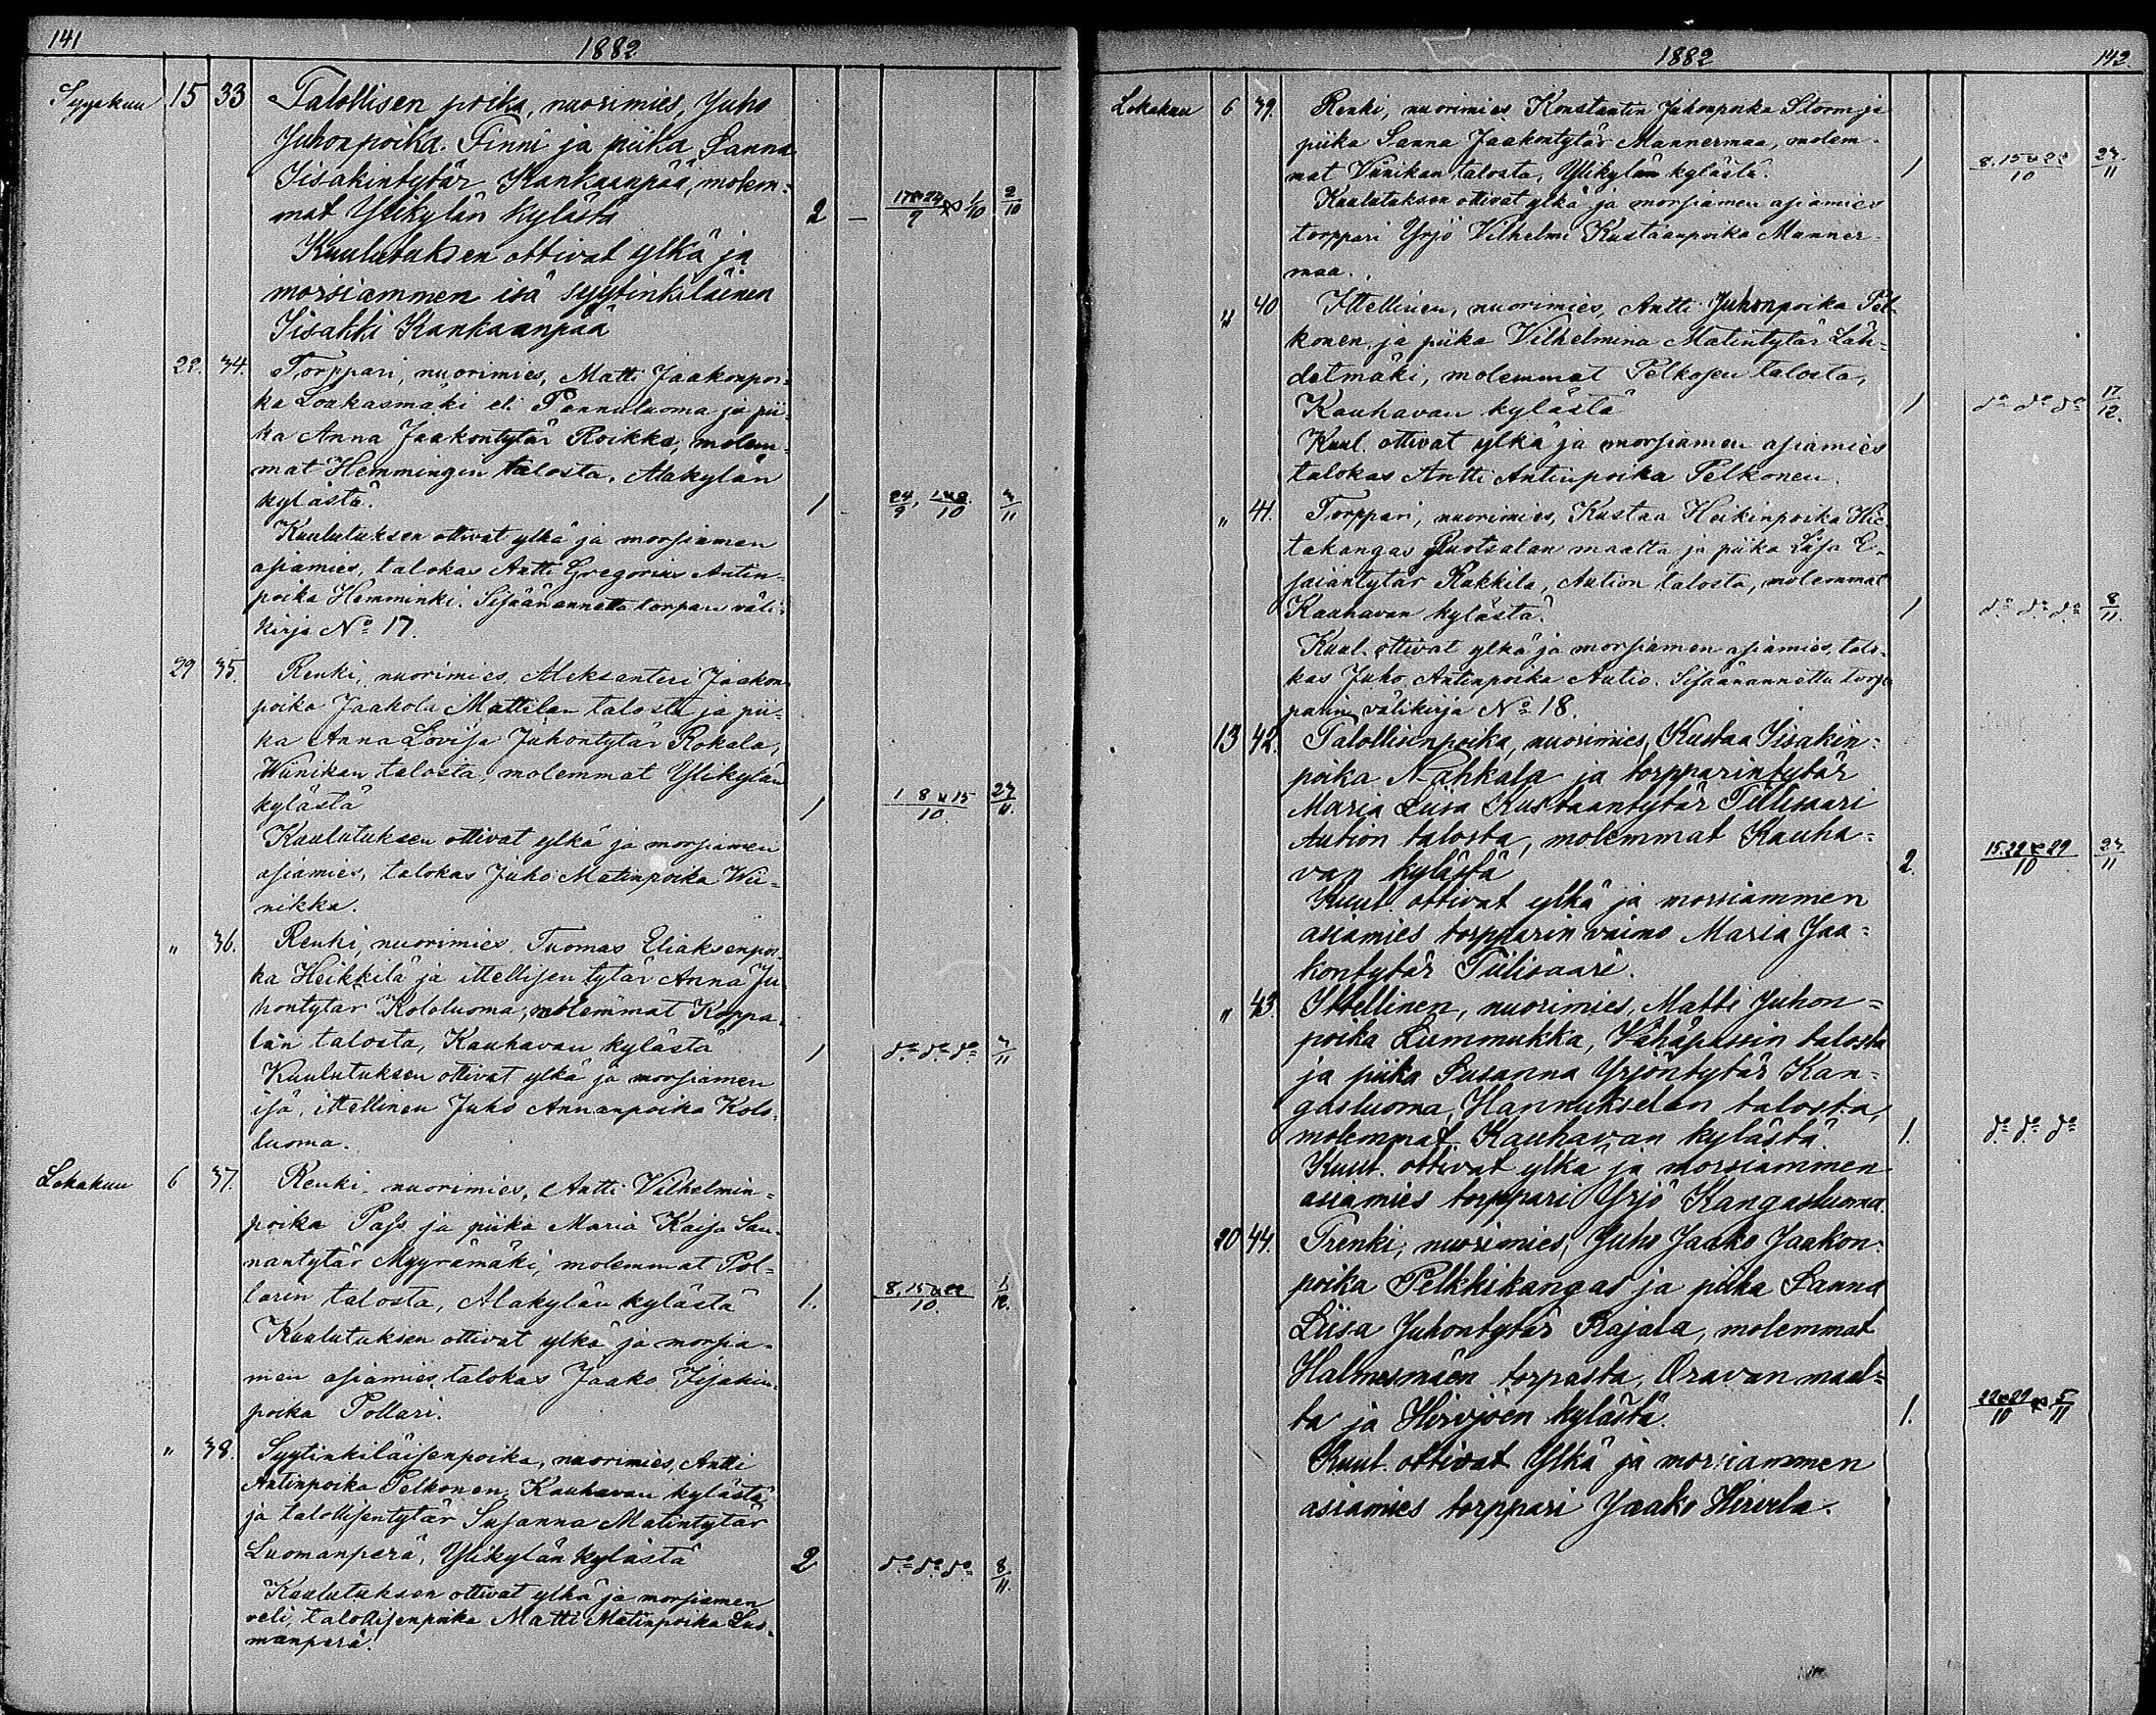 141
1882
Syyskuu 15 33 Talollisen poika, nuorimies, Juho
Juhonpoika Finni ja piika Sanna
Iisakintytär Kankaanpää, molem=
mat Ylikylän kylästä 2 — 17 & 24/9 & 1/10 2/10
Kuulutuksen ottivat ylkä ja
morsiammen isä syytinkiläinen
Iisakki Kankaanpää
22. 34. Torppari, nuorimies, Matti Jaakonpoi=
ka Loukasmäki eli Pannuluoma ja pii=
ka Anna Jaakontytär Roikka, molem=
mat Hemmingin talosta, Alakylän
kylästä. 1 24/9, 1 & 8/10
Kuulutuksen ottivat ylkä ja morsiamen
asiamies, talokas Antti Gregorius Antin=
poika Hemminki. Sisäänannettu torpan väli=
kirja No 17.
29 35. Renki, nuorimies, Aleksanteri Jaakon=
poika Jaakola Mattilan talosta ja pii=
ka Anna Lovisa Juhontytär Rokala,
Wiinikan talosta, molemmat Ylikylän
kylästä 1 1 8 & 15/10
Kuulutuksen ottivat ylkä ja morsiamen
asiamies, talokas Juho Matinpoika Wii=
nikka.
" 36. Renki, nuorimies Tuomas Eliaksenpoi=
ka Heikkilä ja ittellisen tytär Anna Ju=
hontytär Kololuoma, molemmat Koppa=
lan talosta, Kauhavan kylästä 1 do do do
Kuulutuksen ottivat ylkä ja morsiamen
isä, ittellinen Juho Annanpoika Kolo=
luoma.
Lokakuu 6 37. Renki, nuorimies, Antti Vilhelmin=
poika Pass ja piika Maria Kaisa San=
nantytär Myyrämäki, molemmat Pol=
larin talosta, Alakylän kylästä 1. 8, 15 & 22/10. 1/12.
Kuulutuksen ottivat ylkä ja morsia=
men asiamies, talokas Jaako Iisakin=
poika Pollari.
" 38. Syytinkiläisenpoika, nuorimies, Antti
Antinpoika Pelkonen, Kauhavan kylästä
ja talollisentytär Susanna Matintytär
Luomanperä, Ylikylän kylästä 2 do do do 8/11.
Kuulutuksen ottivat ylkä ja morsiamen
veli, talollisenpoika Matti Matinpoika Luo=
manperä.
1882
142.
Lokakuu 6 39. Renki, nuorimies Konstantin Juhonpoika Storm ja
piika Sanna Jaakontytär Mannermaa, molem=
mat Viinikan talosta, Ylikylän kylästä. 1 8, 15 & 22/10
Kuulutuksen ottivat ylkä ja morsiamen asiamies
torppari Yrjö Vilhelmi Kustaanpoika Manner=
maa.
" 40 Ittellinen, nuorimies, Antti Juhonpoika Pel=
konen ja piika Vilhelmina Matintytär Läh=
detmäki, molemmat Pelkosen talosta,
Kauhavan kylästä 1 do do do 17/12.
Kuul. ottivat ylkä ja morsiamen asiamies
talokas Antti Antinpoika Pelkonen.
" 41. Torppari, nuorimies, Kustaa Heikinpoika Hie=
takangas Ruotsalan maalta ja piika Liisa E=
saiantytär Rakkila, Aution talosta, molemmat
Kauhavan kylästä. 1 do do do 8/11.
Kuul. ottivat ylkä ja morsiamen asiamies, talo=
kas Juho Antinpoika Autio. Sisäänannettu torp=
parin välikirja No 18.
13 42. Talollisenpoika, nuorimies, Kustaa Iisakin=
poika Nahkala ja torpparintytär
Maria Liisa Kustaantytär Tiilisaari
Aution talosta, molemmat Kauha=
van kylästä 2. 15. 22 & 29/10
Kuul. ottivat ylkä ja morsiammen
asiamies torpparin vaimo Maria Jaa=
kontytär Tiilisaari.
" 43. Ittellinen, nuorimies, Matti Juhon=
poika Lummukka, Vähäpassin talosta
ja piika Susanna Yrjöntytär Kan=
gasluoma, Hannukselan talosta,
molemmat Kauhavan kylästä. 1. do do do
Kuul. ottivat ylkä ja morsiammen
asiamies torppari Yrjö Kangasluoma.
20 44. Trenki, nuorimies, Juho Jaako Jaakon=
poika Pelkkikangas ja piika Sanna
Liisa Juhontytär Rajala, molemmat
Halmesmäen torpasta, Oravan maal=
ta ja Hirvijoen kylästä. 1. 22 & 29/10 & 5/11
Kuul. ottivat Ylkä ja morsiammen
asiamies torppari Jaako Hirvela.